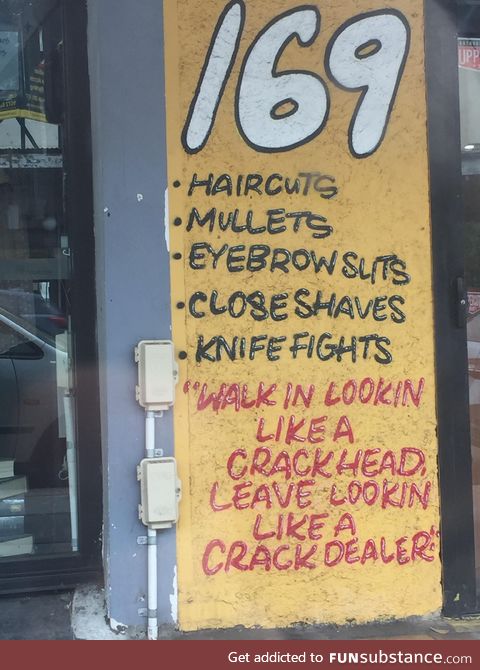 169
• HAIRCUTS
• MULLETS
• EYEBROW SLITS
• CLOSE SHAVES
• KNIFE FIGHTS
"WALK IN LOOKIN
LIKE A
CRACKHEAD,
LEAVE LOOKIN
LIKE A
CRACK DEALER."
Get addicted to FUNsubstance.com